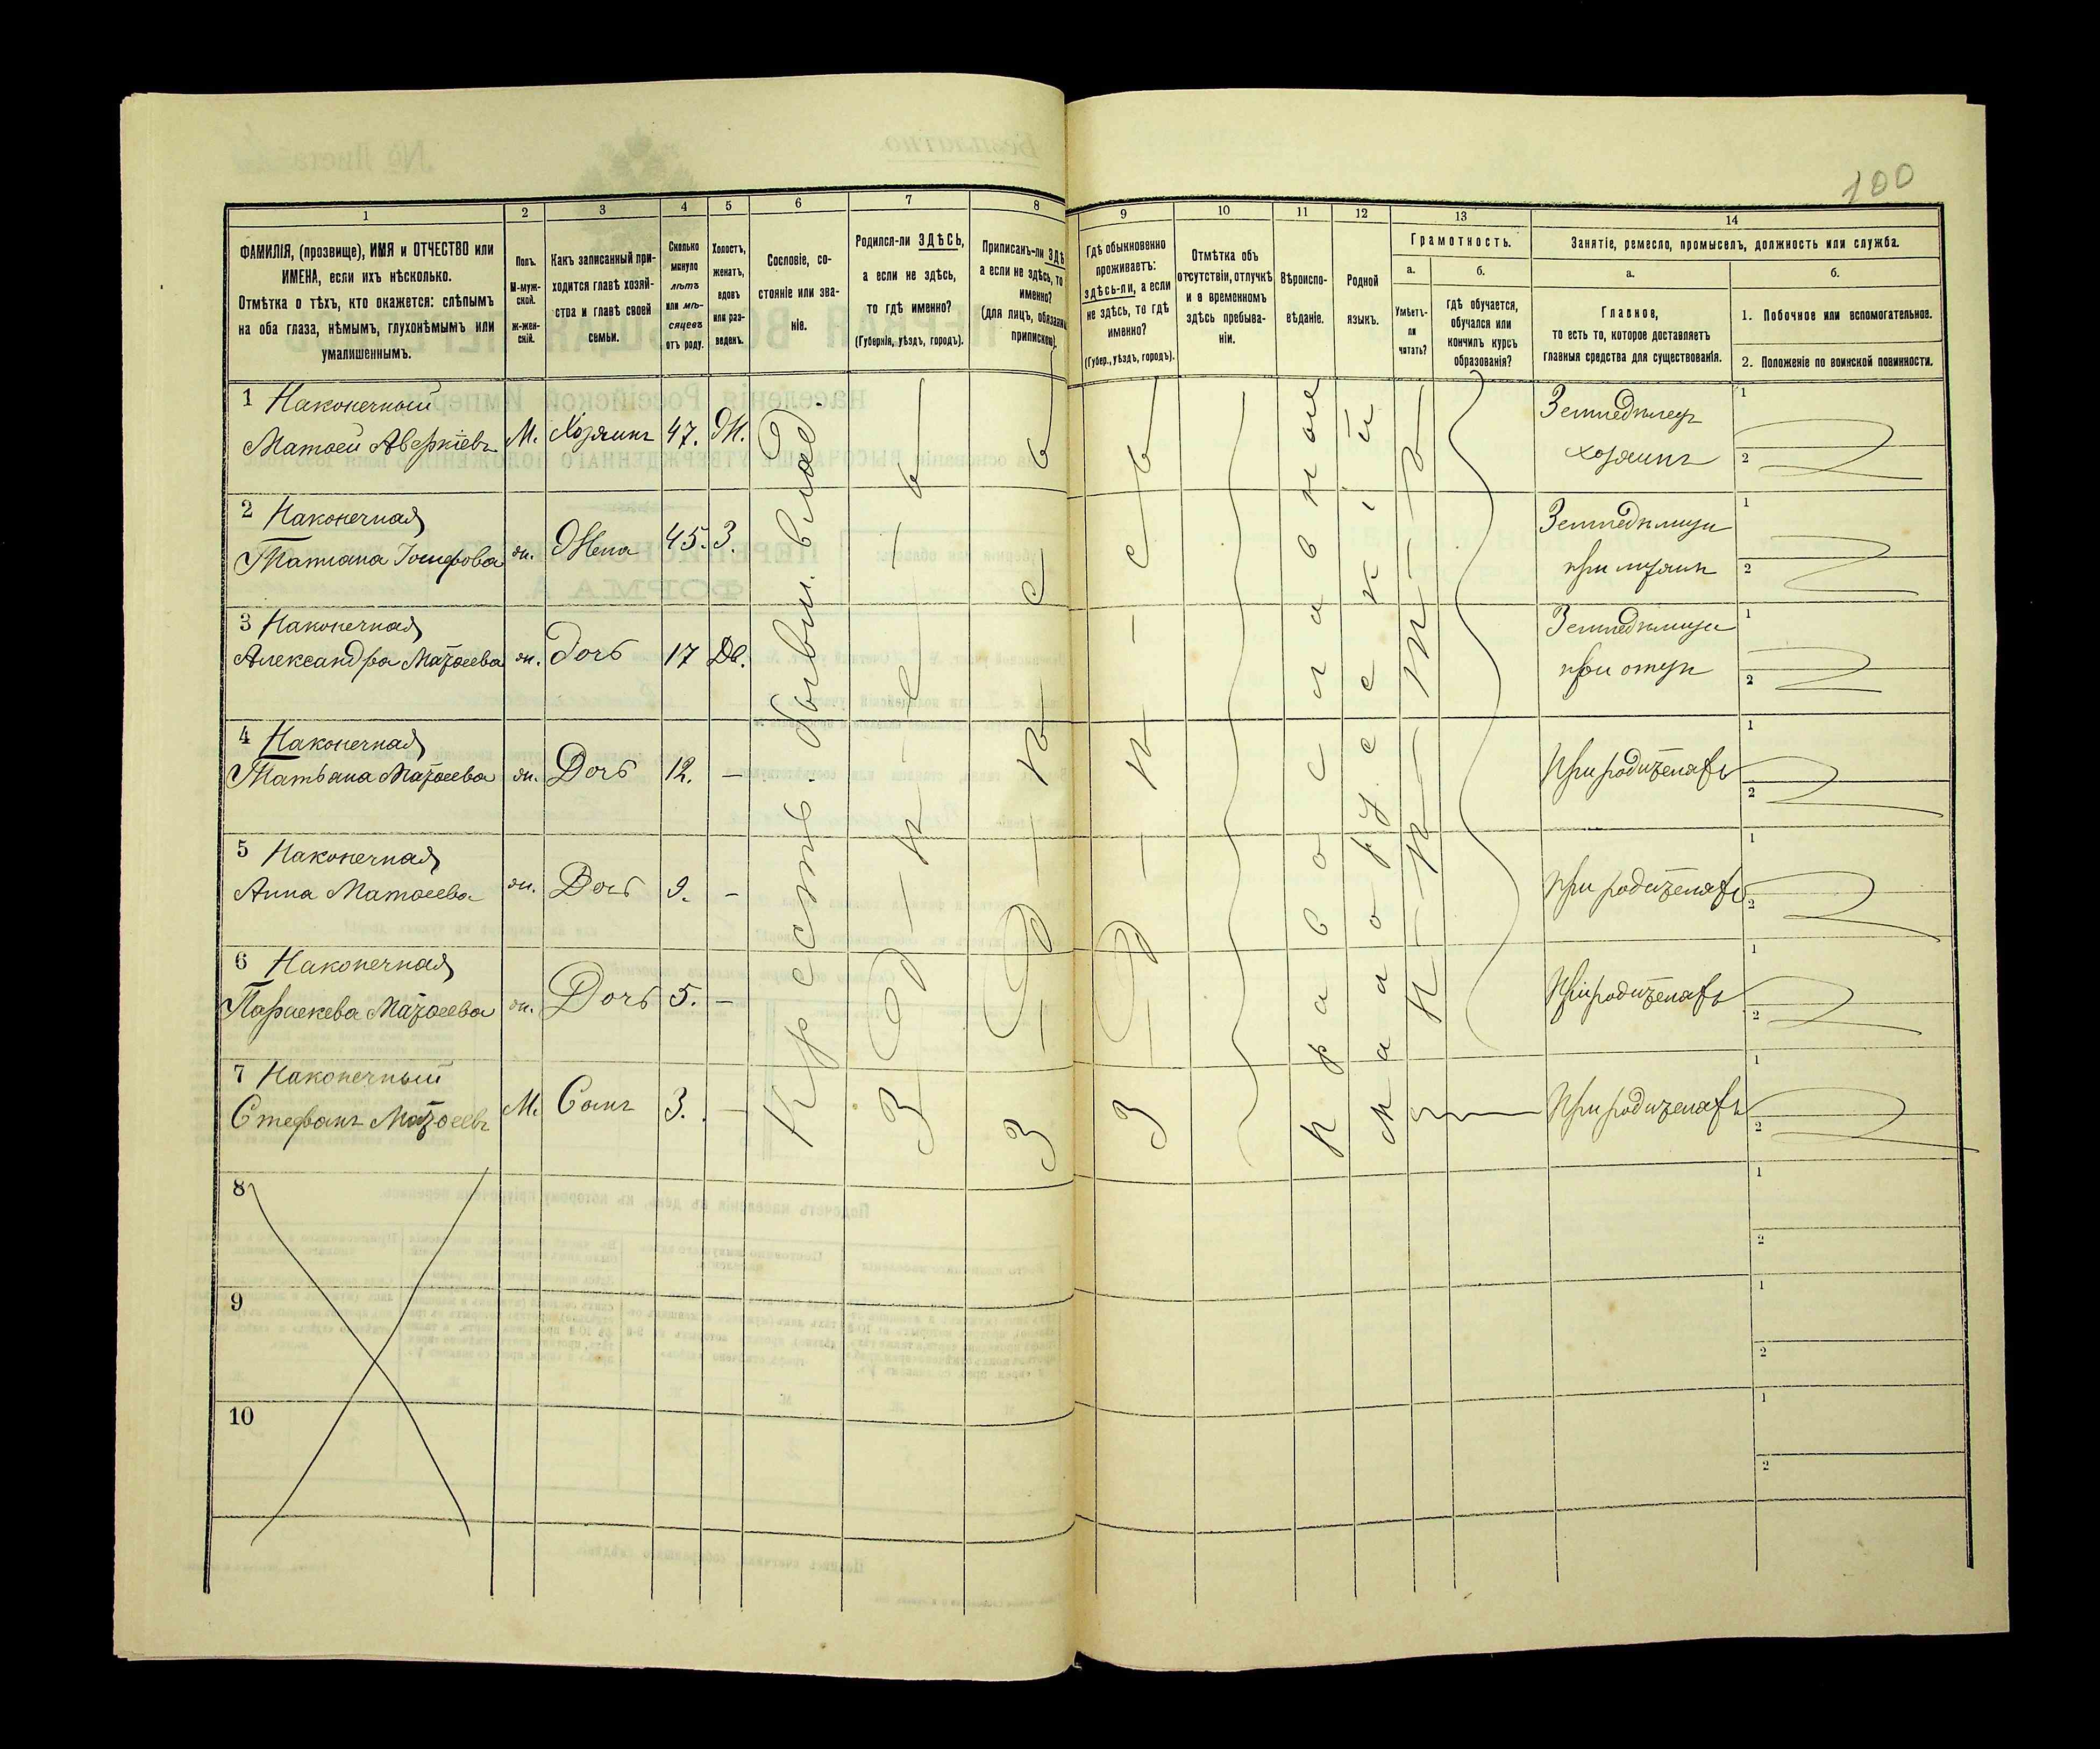 100
1
2
3
4
5
6
7
8
9
10
11
12
13
14
ФАМИЛІЯ, (прозвище), ИМЯ и ОТЧЕСТВО или
ИМЕНА, если ихъ нѣсколько.
Отмѣтка о тѣхъ, кто окажется: слѣпымъ
на оба глаза, нѣмымъ, глухонѣмымъ или
умалишеннымъ.
Полъ.
М-муж-
ской.
ж-жен-
скій.
Какъ записанный при-
ходится главѣ хозяй-
ства и главѣ своей
семьи.
Сколько
минуло
лѣтъ
или мѣ-
сяцевъ
отъ роду.
Холостъ,
женатъ,
вдовъ
или раз-
веденъ.
Сословіе, со-
стояніе или зва-
ніе.
Родился-ли ЗДѢСЬ,
а если не здѣсь,
то гдѣ именно?
(Губернія, уѣздъ, городъ).
Приписанъ-ли ЗДѢ
а если не здѣсь, то
именно?
(для лицъ, обязанн
припискою).
Гдѣ обыкновенно
проживаетъ:
здѣсь-ли, а если
не здѣсь, то гдѣ
именно?
(Губер., уѣздъ, городъ).
Отмѣтка объ
отсутствіи, отлучкѣ
и о временномъ
здѣсь пребыва-
ніи.
Вѣроиспо-
вѣданіе.
Родной
языкъ.
Грамотность.
а.
б.
Умѣетъ-
ли
читать?
гдѣ обучается,
обучался или
кончилъ курсъ
образованія?
Занятіе, ремесло, промыселъ, должность или служба.
а.
б.
Главное,
то есть то, которое доставляетъ
главныя средства для существованія.
1. Побочное или вспомогательное.
2. Положеніе по воинской повинности.
1 Наконечный
Матѳей Аверкіевъ М. Хозяинъ 47. Ж.
Земледѣлецъ
хозяинъ
1
2
2 Наконечная
Татиана Іосифова ж. Жена 45. З.
Земледѣлица
при мужѣ
1
2
3 Наконечная
Александра Матѳеева ж. Дочь 17 Дв.
Земледѣлица
при отцѣ
1
2
4 Наконечная
Татьана Матѳеева ж. Дочь 12. —
При родителяхъ
1
2
5 Наконечная
Анна Матѳеева ж. Дочь 9. —
При родителяхъ
1
2
6 Наконечная
Параскева Матѳеева ж. Дочь 5. —
При родителяхъ
1
2
7 Наконечный
Стефанъ Матѳеевъ М. Сынъ 3. —
При родителяхъ
1
2
Крестьь. бывш. влад.
Здѣсь
Здѣсь
Здѣсь
Православное
Малорусскій
Нѣтъ
8
1
2
9
1
2
10
1
2